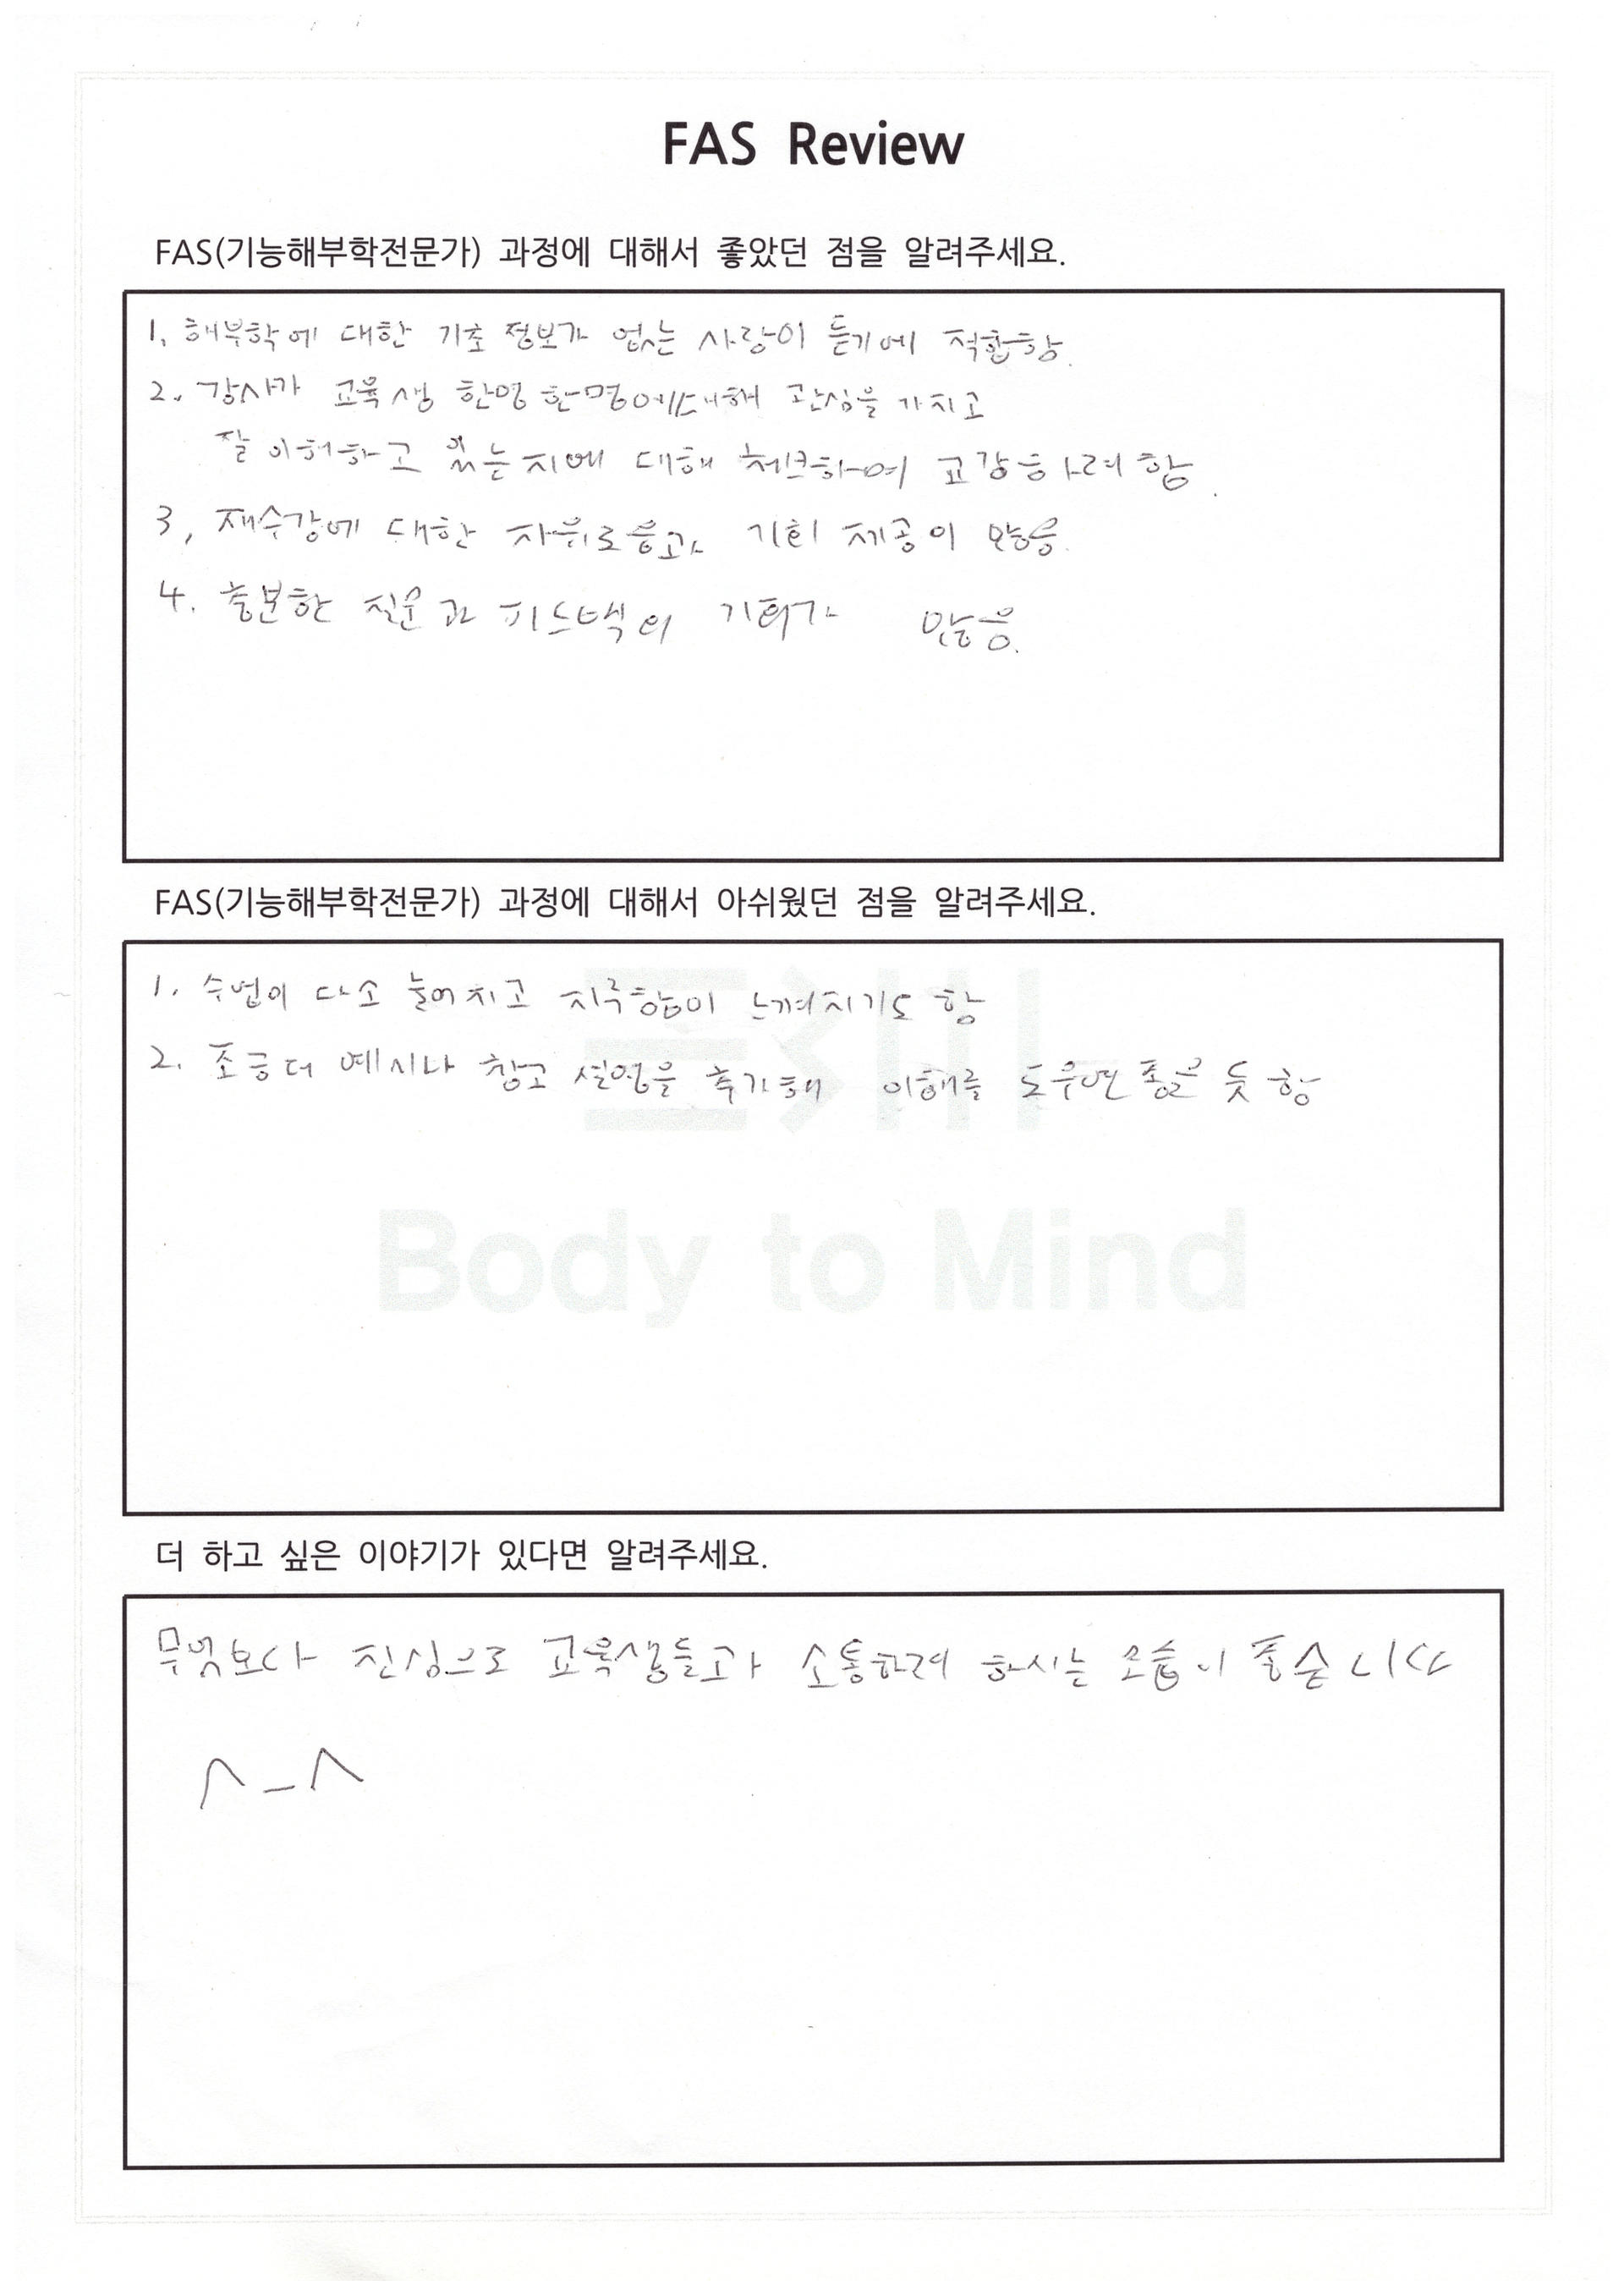 FAS Review
FAS(기능해부학전문가) 과정에 대해서 좋았던 점을 알려주세요.
1. 해부학에 대한 기초 정보가 없는 사람이 듣기에 적합함.
2. 강사가 교육생 한명 한명에 대해 관심을 가지고
잘 이해하고 있는지에 대해 체크하며 교강하려 함.
3. 재수강에 대한 자유로움과 기회 제공이 많음.
4. 충분한 질문과 피드백의 기회가 많음.
FAS(기능해부학전문가) 과정에 대해서 아쉬웠던 점을 알려주세요.
1. 수업이 다소 늘어지고 지루함이 느껴지기도 함
2. 조금 더 예시나 참고 설명을 추가해 이해를 도우면 좋을 듯 함
Body to Mind
더 하고 싶은 이야기가 있다면 알려주세요.
무엇보다 진심으로 교육생들과 소통하려 하시는 모습이 좋습니다
^_^